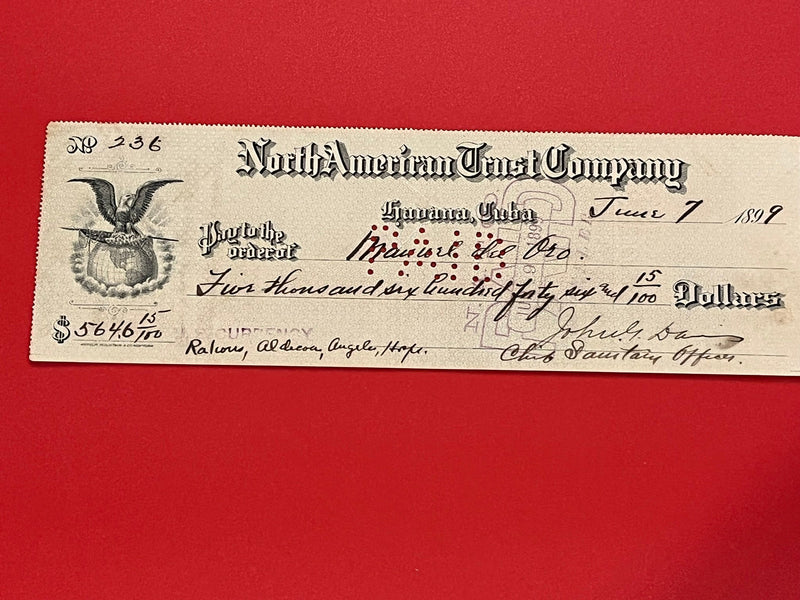 Nº 236
North American Trust Company
Havana, Cuba June 7 1899
Pay to the
order of Manuel del Oro.
PAID
Five thousand six hundred forty six and 15/100 Dollars
$5646 15/100
U.S. CURRENCY
John G. Davis
Rations, Aldecoa, Angels, Hosp. Chief Sanitary Officer.